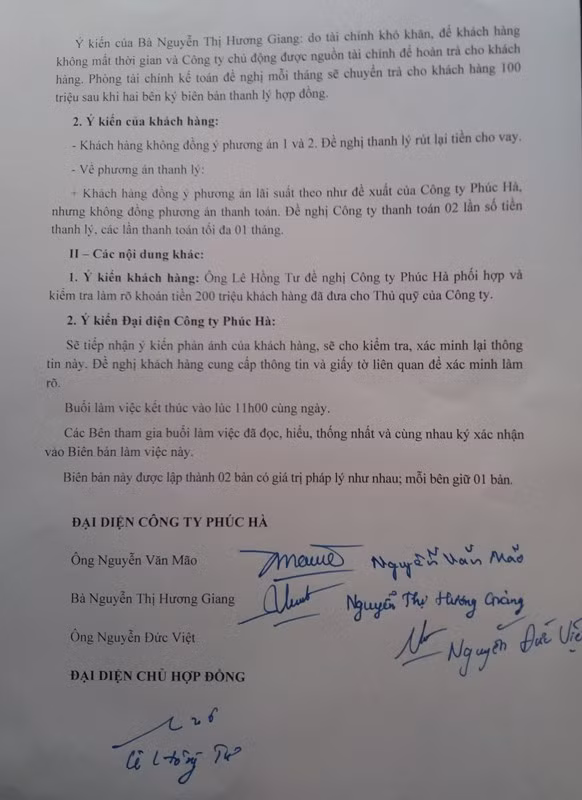 Ý kiến của Bà Nguyễn Thị Hương Giang: do tài chính khó khăn, để khách hàng
không mất thời gian và Công ty chủ động được nguồn tài chính để hoàn trả cho khách
hàng. Phòng tài chính kế toán đề nghị mỗi tháng sẽ chuyển trả cho khách hàng 100
triệu sau khi hai bên ký biên bản thanh lý hợp đồng.
2. Ý kiến của khách hàng:
- Khách hàng không đồng ý phương án 1 và 2. Đề nghị thanh lý rút lại tiền cho vay.
- Về phương án thanh lý:
+ Khách hàng đồng ý phương án lãi suất theo như đề xuất của Công ty Phúc Hà,
nhưng không đồng phương án thanh toán. Đề nghị Công ty thanh toán 02 lần số tiền
thanh lý, các lần thanh toán tối đa 01 tháng.
II – Các nội dung khác:
1. Ý kiến khách hàng: Ông Lê Hồng Tư đề nghị Công ty Phúc Hà phối hợp và
kiểm tra làm rõ khoản tiền 200 triệu khách hàng đã đưa cho Thủ quỹ của Công ty.
2. Ý kiến Đại diện Công ty Phúc Hà:
Sẽ tiếp nhận ý kiến phản ánh của khách hàng, sẽ cho kiểm tra, xác minh lại thông
tin này. Đề nghị khách hàng cung cấp thông tin và giấy tờ liên quan để xác minh làm
rõ.
Buổi làm việc kết thúc vào lúc 11h00 cùng ngày.
Các Bên tham gia buổi làm việc đã đọc, hiểu, thống nhất và cùng nhau ký xác nhận
vào Biên bản làm việc này.
Biên bản này được lập thành 02 bản có giá trị pháp lý như nhau; mỗi bên giữ 01 bản.
ĐẠI DIỆN CÔNG TY PHÚC HÀ
Ông Nguyễn Văn Mão Nguyễn Văn Mão
Bà Nguyễn Thị Hương Giang Nguyễn Thị Hương Giang
Ông Nguyễn Đức Việt Nguyễn Đức Việ
ĐẠI DIỆN CHỦ HỢP ĐỒNG
Lê Hồng Tư